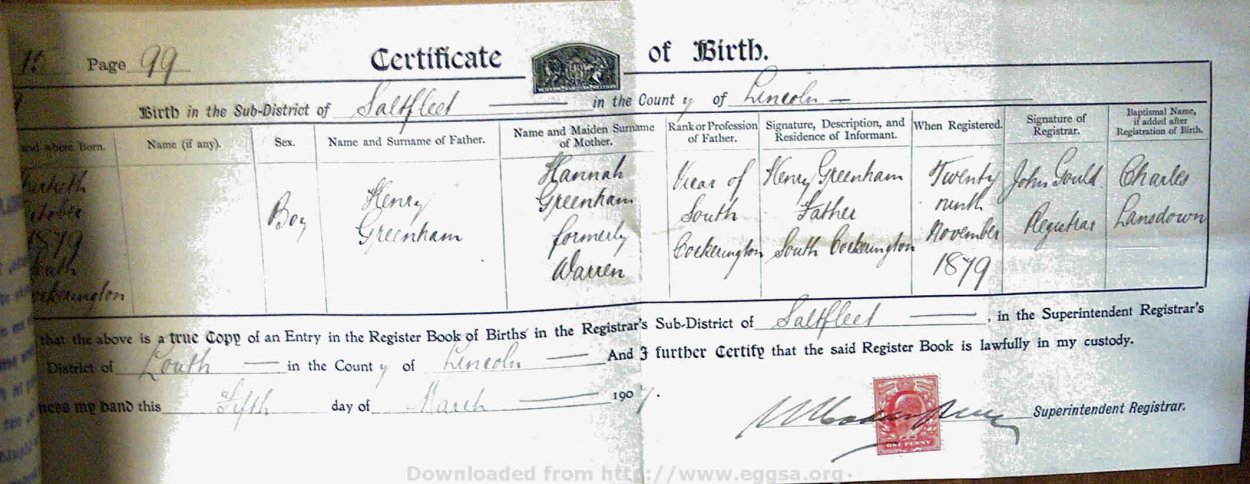 15 Page 99 Certificate of Birth.
Birth in the Sub-District of Saltfleet in the County of Lincoln
and where Born. Name (if any). Sex. Name and Surname of Father. Name and Maiden Surname of Mother. Rank or Profession of Father. Signature, Description, and Residence of Informant. When Registered. Signature of Registrar. Baptismal Name, if added after Registration of Birth.
1879
Cockerington
Boy
Henry
Greenham
Hannah
Greenham
formerly
Warren
Vicar of
South
Cockerington
Henry Greenham
Father
South Cockerington
Twenty
ninth
November
1879
John Gould
Registrar
Charles
Lansdown
that the above is a true Copy of an Entry in the Register Book of Births in the Registrar's Sub-District of Saltfleet, in the Superintendent Registrar's
District of Louth in the County of Lincoln And I further Certify that the said Register Book is lawfully in my custody.
ness my hand this Fifth day of March 1907.
Superintendent Registrar.
ONE PENNY
Downloaded from http://www.eggsa.org